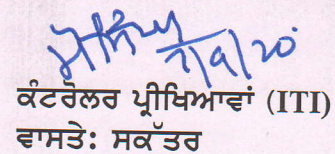 7/9/20
ਕੰਟਰੋਲਰ ਪ੍ਰੀਖਿਆਵਾਂ (ITI)
ਵਾਸਤੇ: ਸਕੱਤਰ